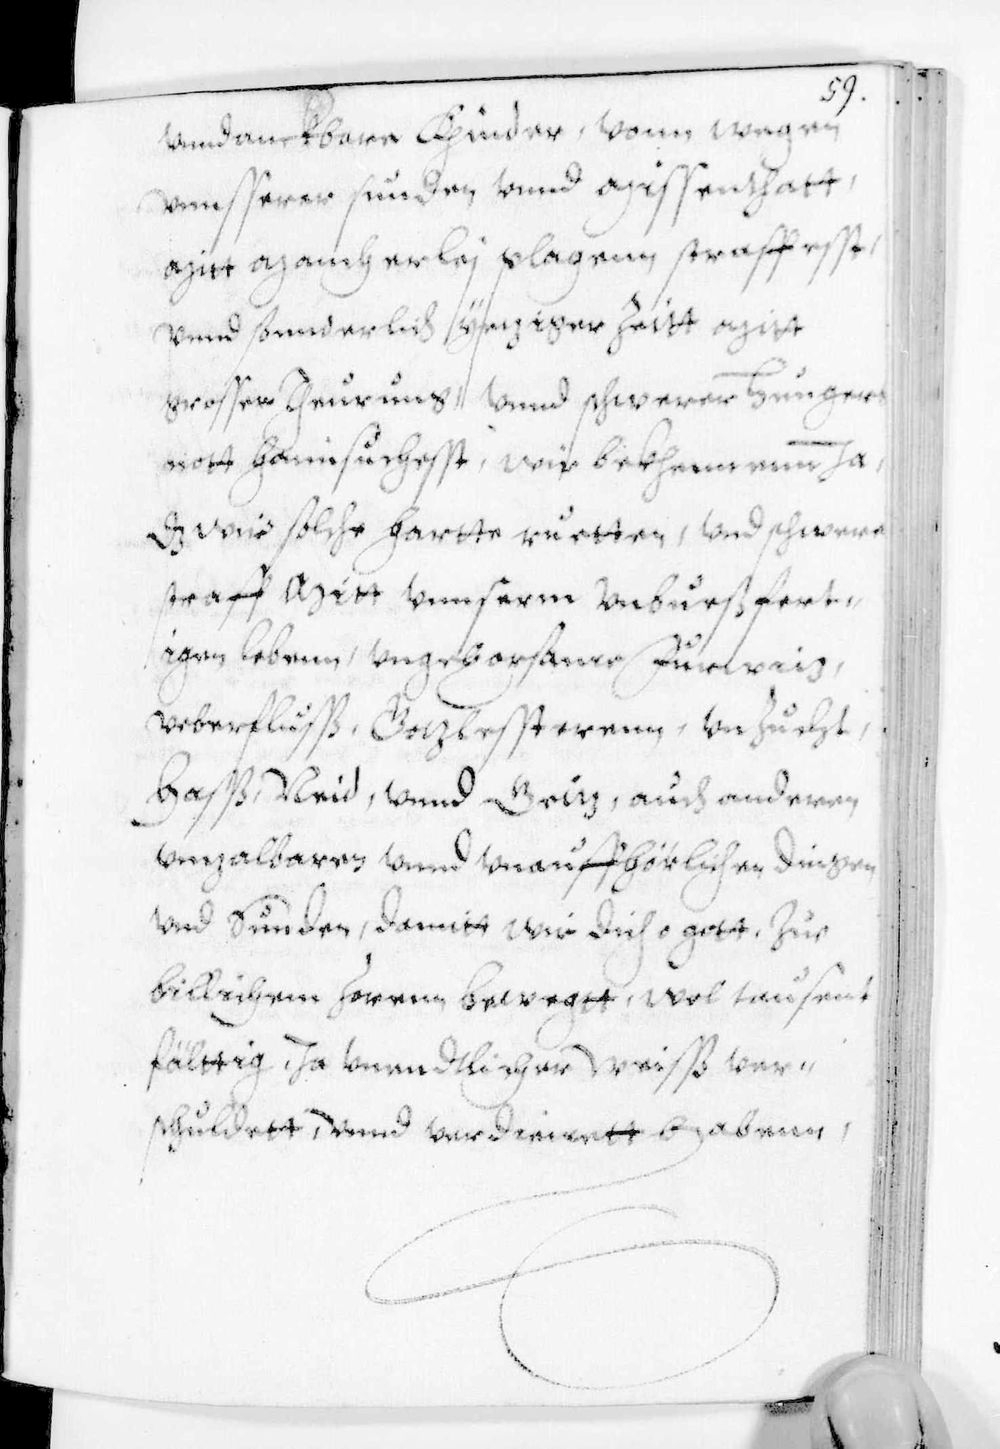 59.
vnndanckbare Khinder, vonn wegen
vnnsserer sunden vnnd Missenthatt,
Mitt Mancherleÿ plagenn straffesst,
vnnd sonnderlich yeziger Zeitt Mitt
grosser Theurung, vnnd schwerer Hungers
nott haimsuchesst, wir bekhennenn Ja,
Dz wir solche hartte ruetten, vnd schwere
straff Mitt vnnserm vnbuessfert-
igen lebenn, vngehorsame Furwiz,
veberflusss, Gozlessterenn, vnzucht,
Hasss, Neid, vnnd Geiz, auch anderen
vnzalbaren vnnd vnauffhörlichen dingen
vnd Sunden, damitt wir dich o gott, zue
billichem Zorenn bewegtt, wol tausent
fälttig, Ja vnendtlicher weisss ver-
schuldett, vnnd verdienett habenn,